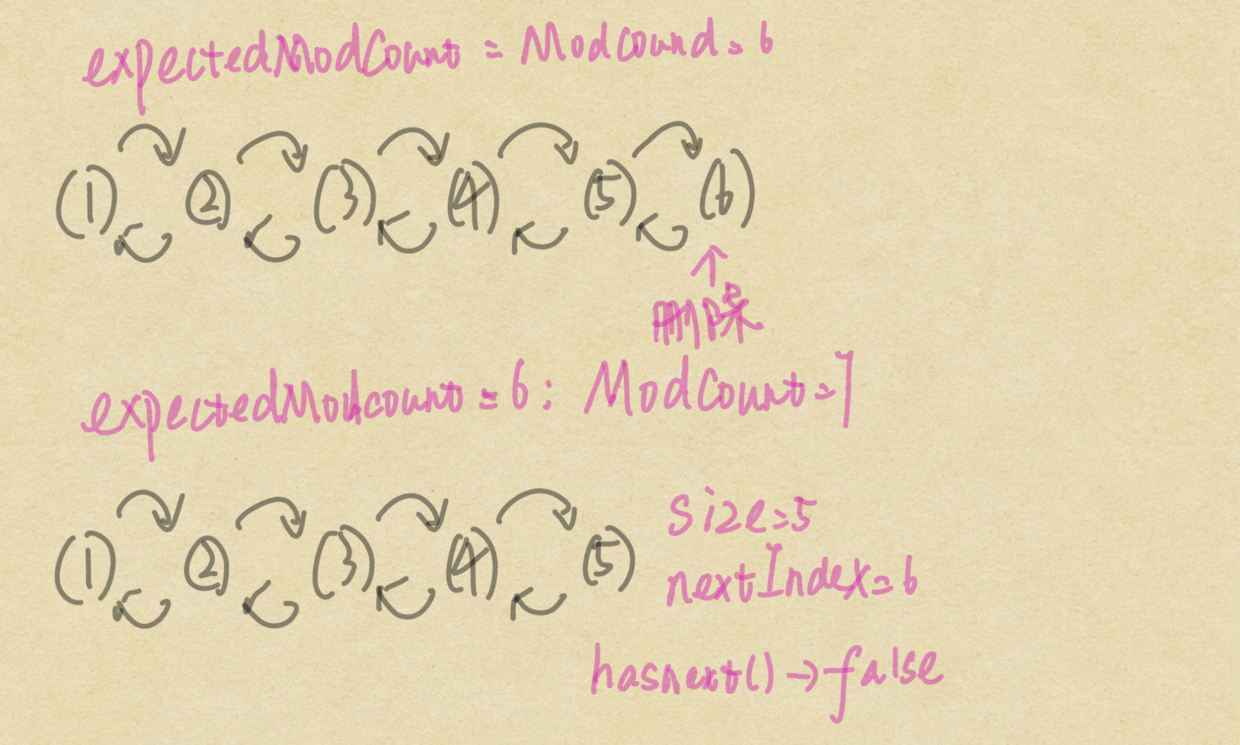 expectedModCount = Modcound = 6
(1) (2) (3) (4) (5) (6)
删除
expectedModcount = 6 : ModCount = 7
(1) (2) (3) (4) (5)
size=5
nextIndex=6
hasnext() → false